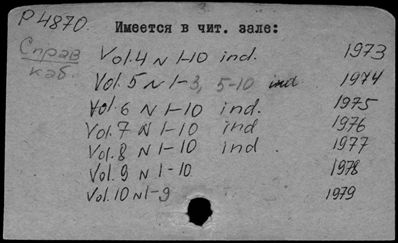 P4870
Имеется в чит. зале:
Справ
каб.
Vol.4 N 1-10 ind. 1973
Vol.5 N 1-3, 5-10 ind 1974
Vol.6 N 1-10 ind. 1975
Vol.7 N 1-10 ind 1976
Vol.8 N 1-10 ind. 1977
Vol.9 N 1-10 1978
Vol.10 N 1-9 1979